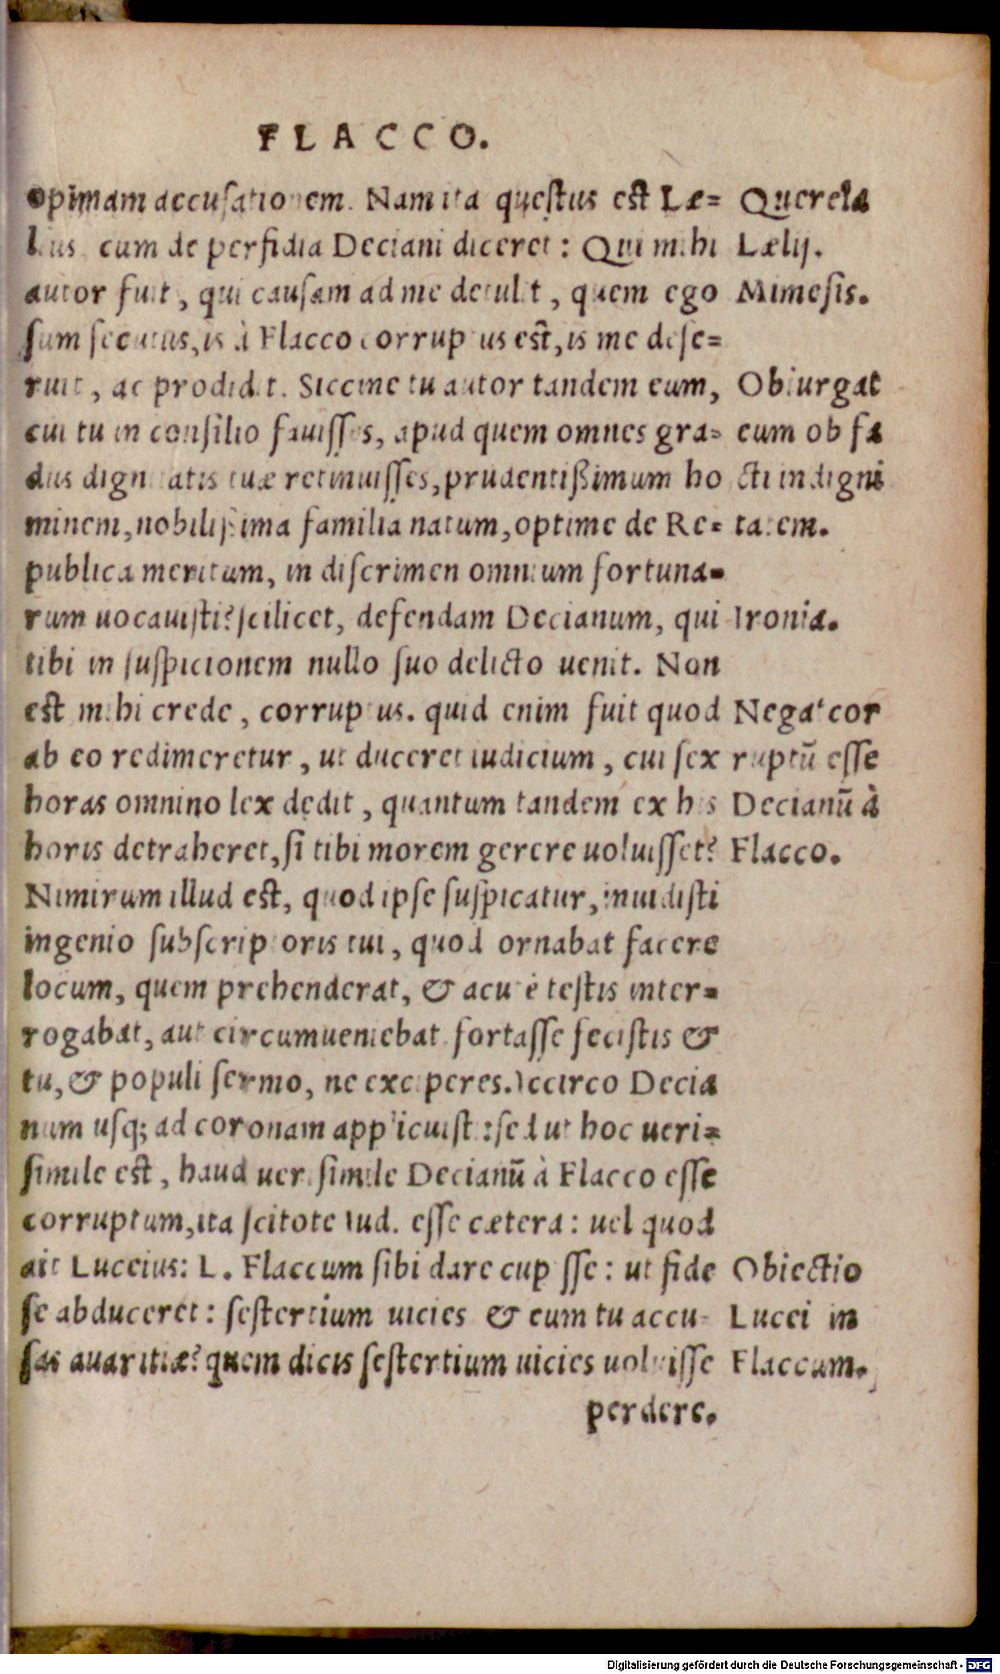 FLACCO.
opimam accusationem. Nam ita questus est Læ= Querela
lius cum de perfidia Deciani diceret: Qui mihi Lælij.
autor fuit, qui causam ad me detulit, quem ego Mimesis.
sum secutus, is à Flacco corruptus est, is me dese=
ruit, ac prodidit. Siccine tu autor tandem eum, Obiurgat
cui tu in consilio fauisses, apud quem omnes gra= eum ob fa
dus dignitatis tuæ retinuisses, prudentißimum ho cti indigni
minem, nobilißima familia natum, optime de Re= tatem.
publica meritum, in discrimen omnium fortuna=
rum uocauisti? scilicet, defendam Decianum, qui Ironia.
tibi in suspicionem nullo suo delicto uenit. Non
est mihi crede, corruptus. quid enim fuit quod Negat cor
ab eo redimeretur, ut duceret iudicium, cui sex ruptū esse
horas omnino lex dedit, quantum tandem ex his Decianū à
horis detraheret, si tibi morem gerere uoluisset? Flacco.
Nimirum illud est, quod ipse suspicatur, inuidisti
ingenio subscriptoris tui, quod ornabat facere
locum, quem prehenderat, & acutè testis inter=
rogabat, aut circumueniebat fortasse fecistis &
tu, & populi sermo, ne exciperes. Iccirco Decia
num usq; ad coronam applicuisti: sed ut hoc ueri=
simile est, haud uerisimile Decianū à Flacco esse
corruptum, ita scitote iud. esse cætera: uel quod
ait Luceius: L. Flaccum sibi dare cupisse: ut fide Obiectio
se abduceret: sestertium uicies & eum tu accu- Lucei in
sas auaritiæ? quem dicis sestertium uicies uoluisse Flaccum.
perdere.
Digitalisierung gefördert durch die Deutsche Forschungsgemeinschaft - DFG